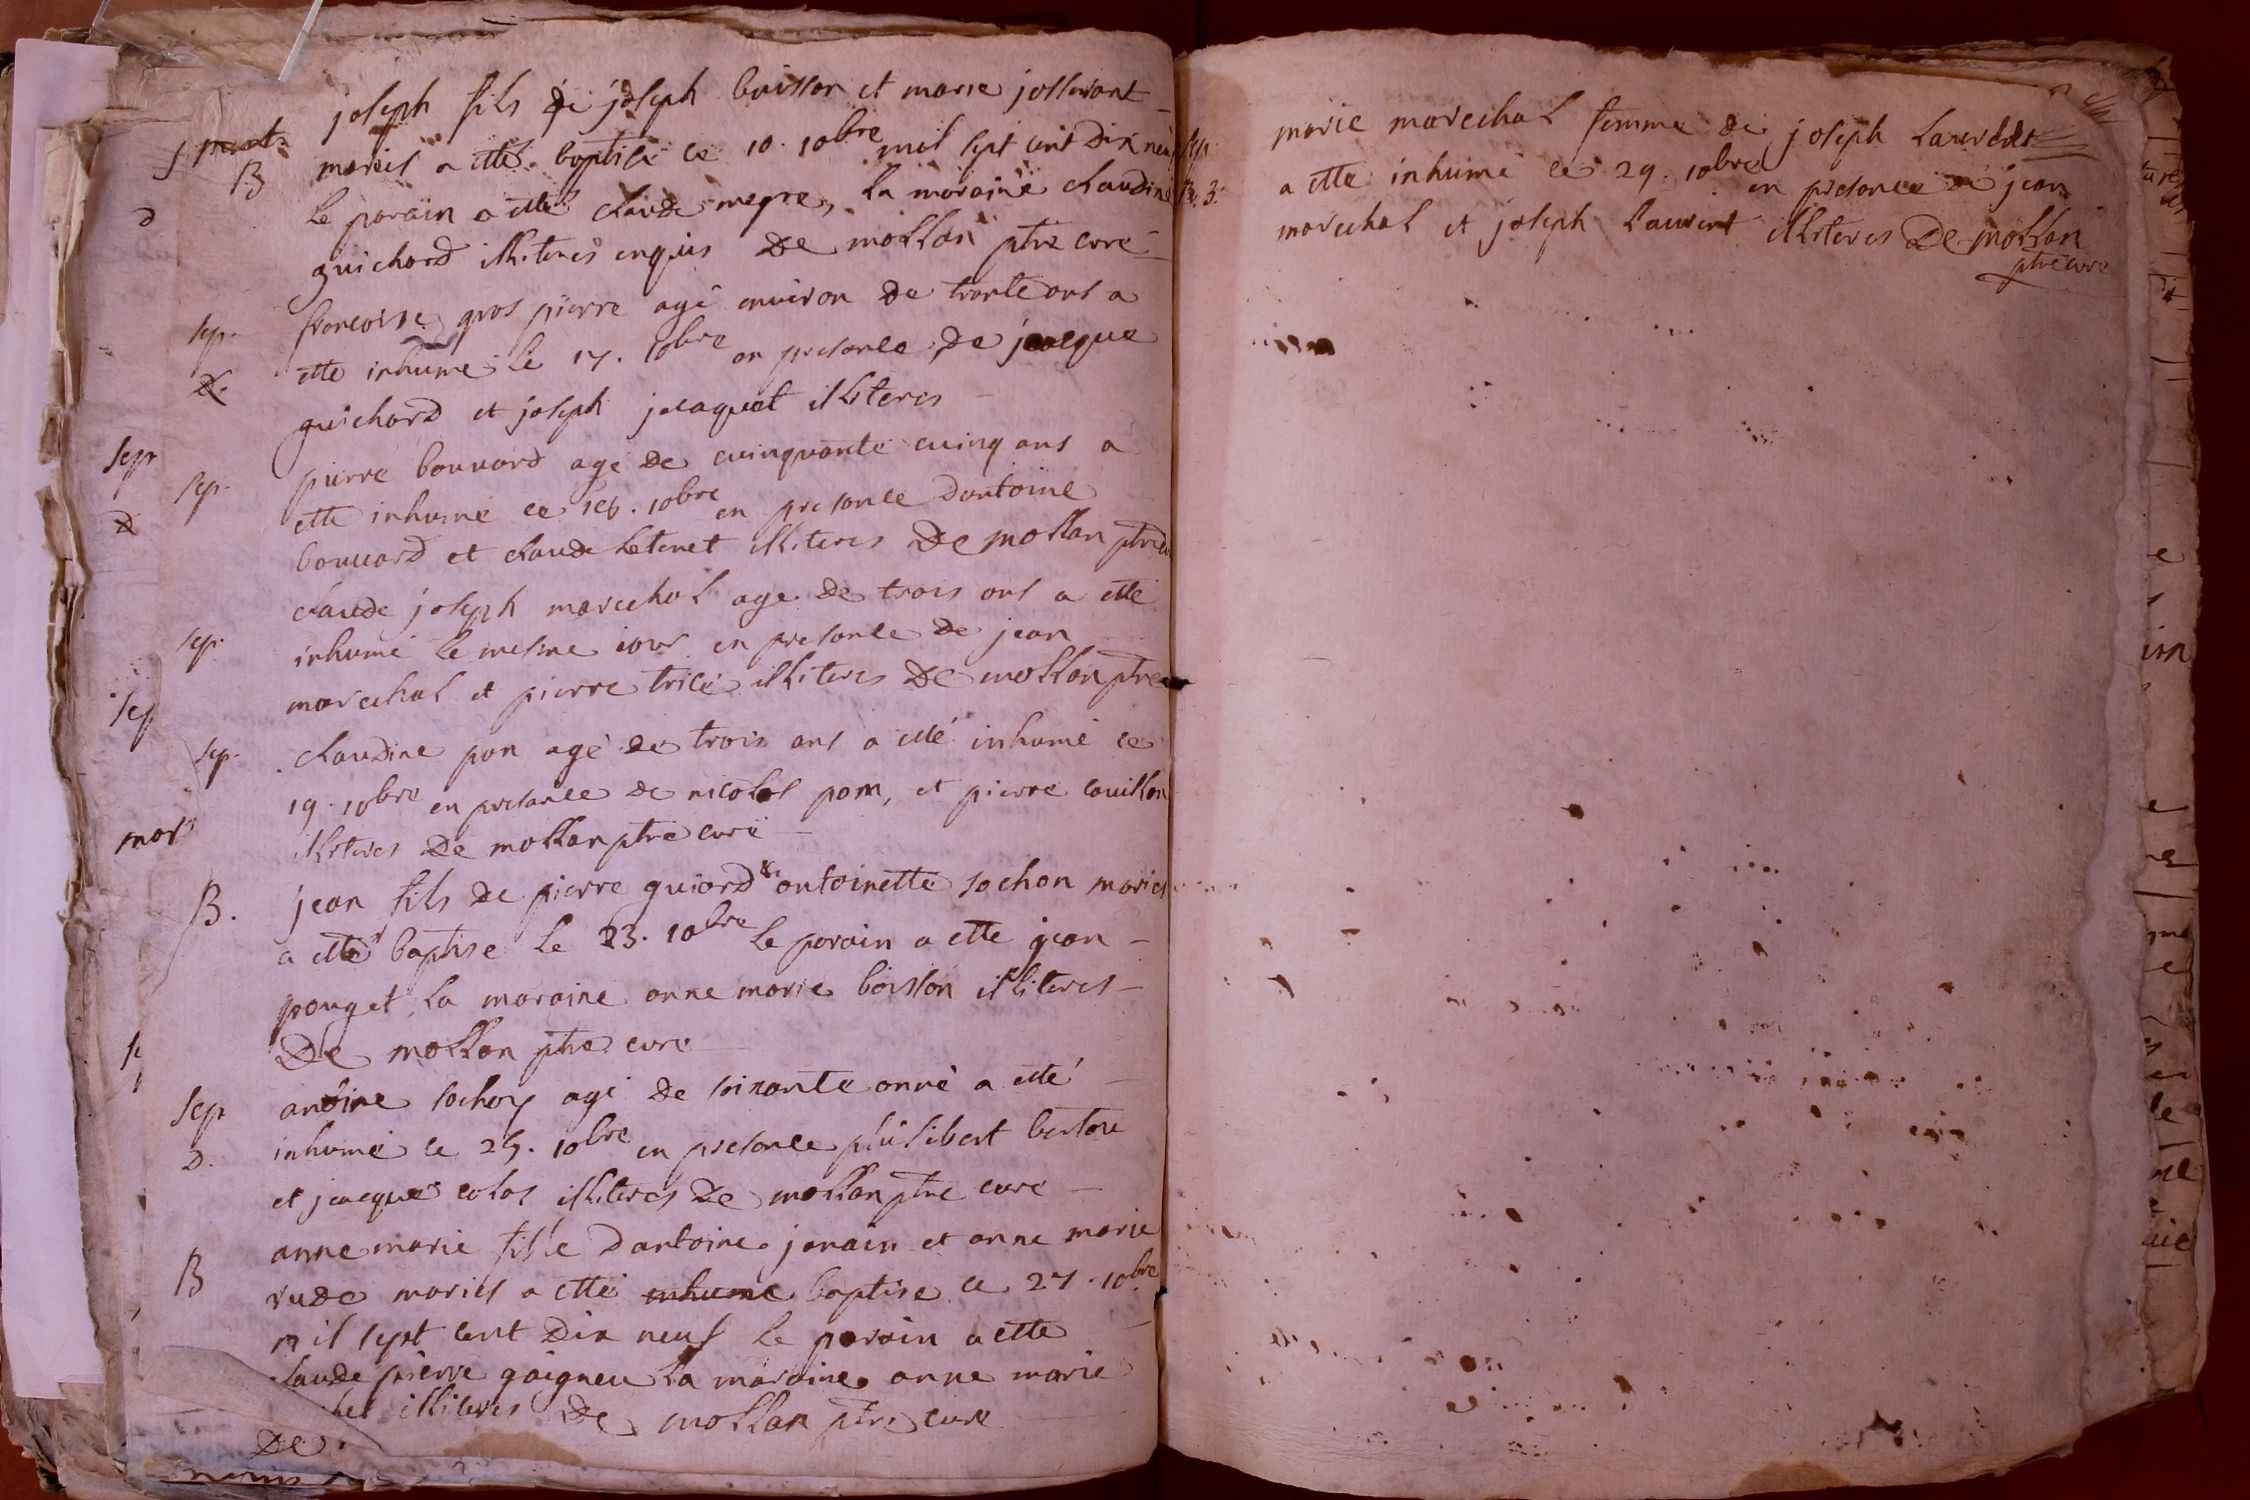 joseph fils de joseph buisson et marie josserant
B mariés a etté baptisé ce 10. 10bre mil sept cent dix neuf
le parain a etté claude megre, la maraine claudine
guichard illiteres enquis De mollan ptre curé
sep. francoise gros pierre agé environ de trante ans a
etté inhumé le 17. 10bre en presance de jacque
guichard et joseph jacquet illiteres
sep. pierre bouvard agé de cuinquante cuinq ans a
etté inhumé ce 18. 10bre en presance dantoine
bouvard et claude illiteres De mollan ptre
claude joseph marechal age de trois ans a etté
sep. inhumé le mesme iour en presance de jean
marechal et pierre illiteres De mollan ptre
sep. claudine pon agé de trois ans a etté inhumé ce
19. 10bre en presance de nicolas pom, et pierre couillon
illiteres De mollan ptre curé
B. jean fils de pierre guiard & antoinette sochon mariés
a etté baptise le 23. 10bre le parain a ette jean
pouget, la maraine anne marie boisson illiteres
De mollan ptre cure
sep antoine sochon agé de soixante a etté
D. inhumé ce 25. 10bre en presance philibert
et jacque colas illiteres De mollan ptre cure
anne marie fille dantoine janain et anne marie
B rude mariés a etté inhumé baptise ce 27. 10bre
mil sept cent dix neuf le parain a ette
claude pierre gaigneu la maraine anne marie
illiteres De mollan ptre cure
De
sep. marie marechal femme de joseph laurent
a ette inhumé ce 29. 10bre en presance de jean
marechal et joseph laurent illiteres De mollan
ptre cure